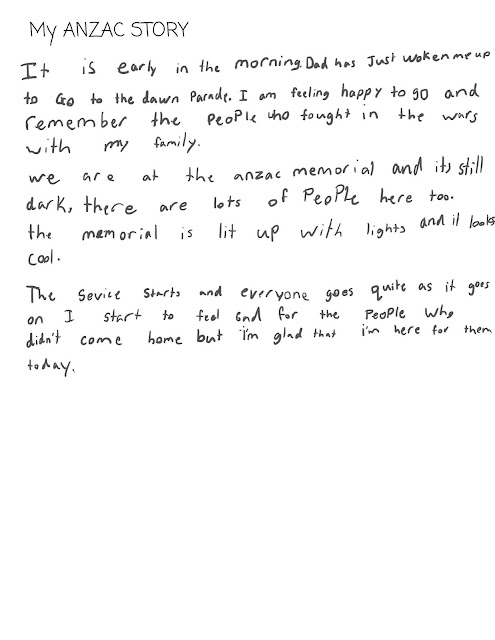 My ANZAC STORY
It is early in the morning. Dad has Just woken me up
to Go to the dawn Parade. I am feeling happy to go and
remember the PeoPle who fought in the wars
with my family.
we are at the anzac memorial and its still
dark, there are lots of PeoPle here too.
the memorial is lit up with lights and it looks
cool.
The Sevice Starts and everyone goes quite as it goes
on I start to feel sad for the PeoPle who
didn't come home but I'm glad that i'm here for them
today.